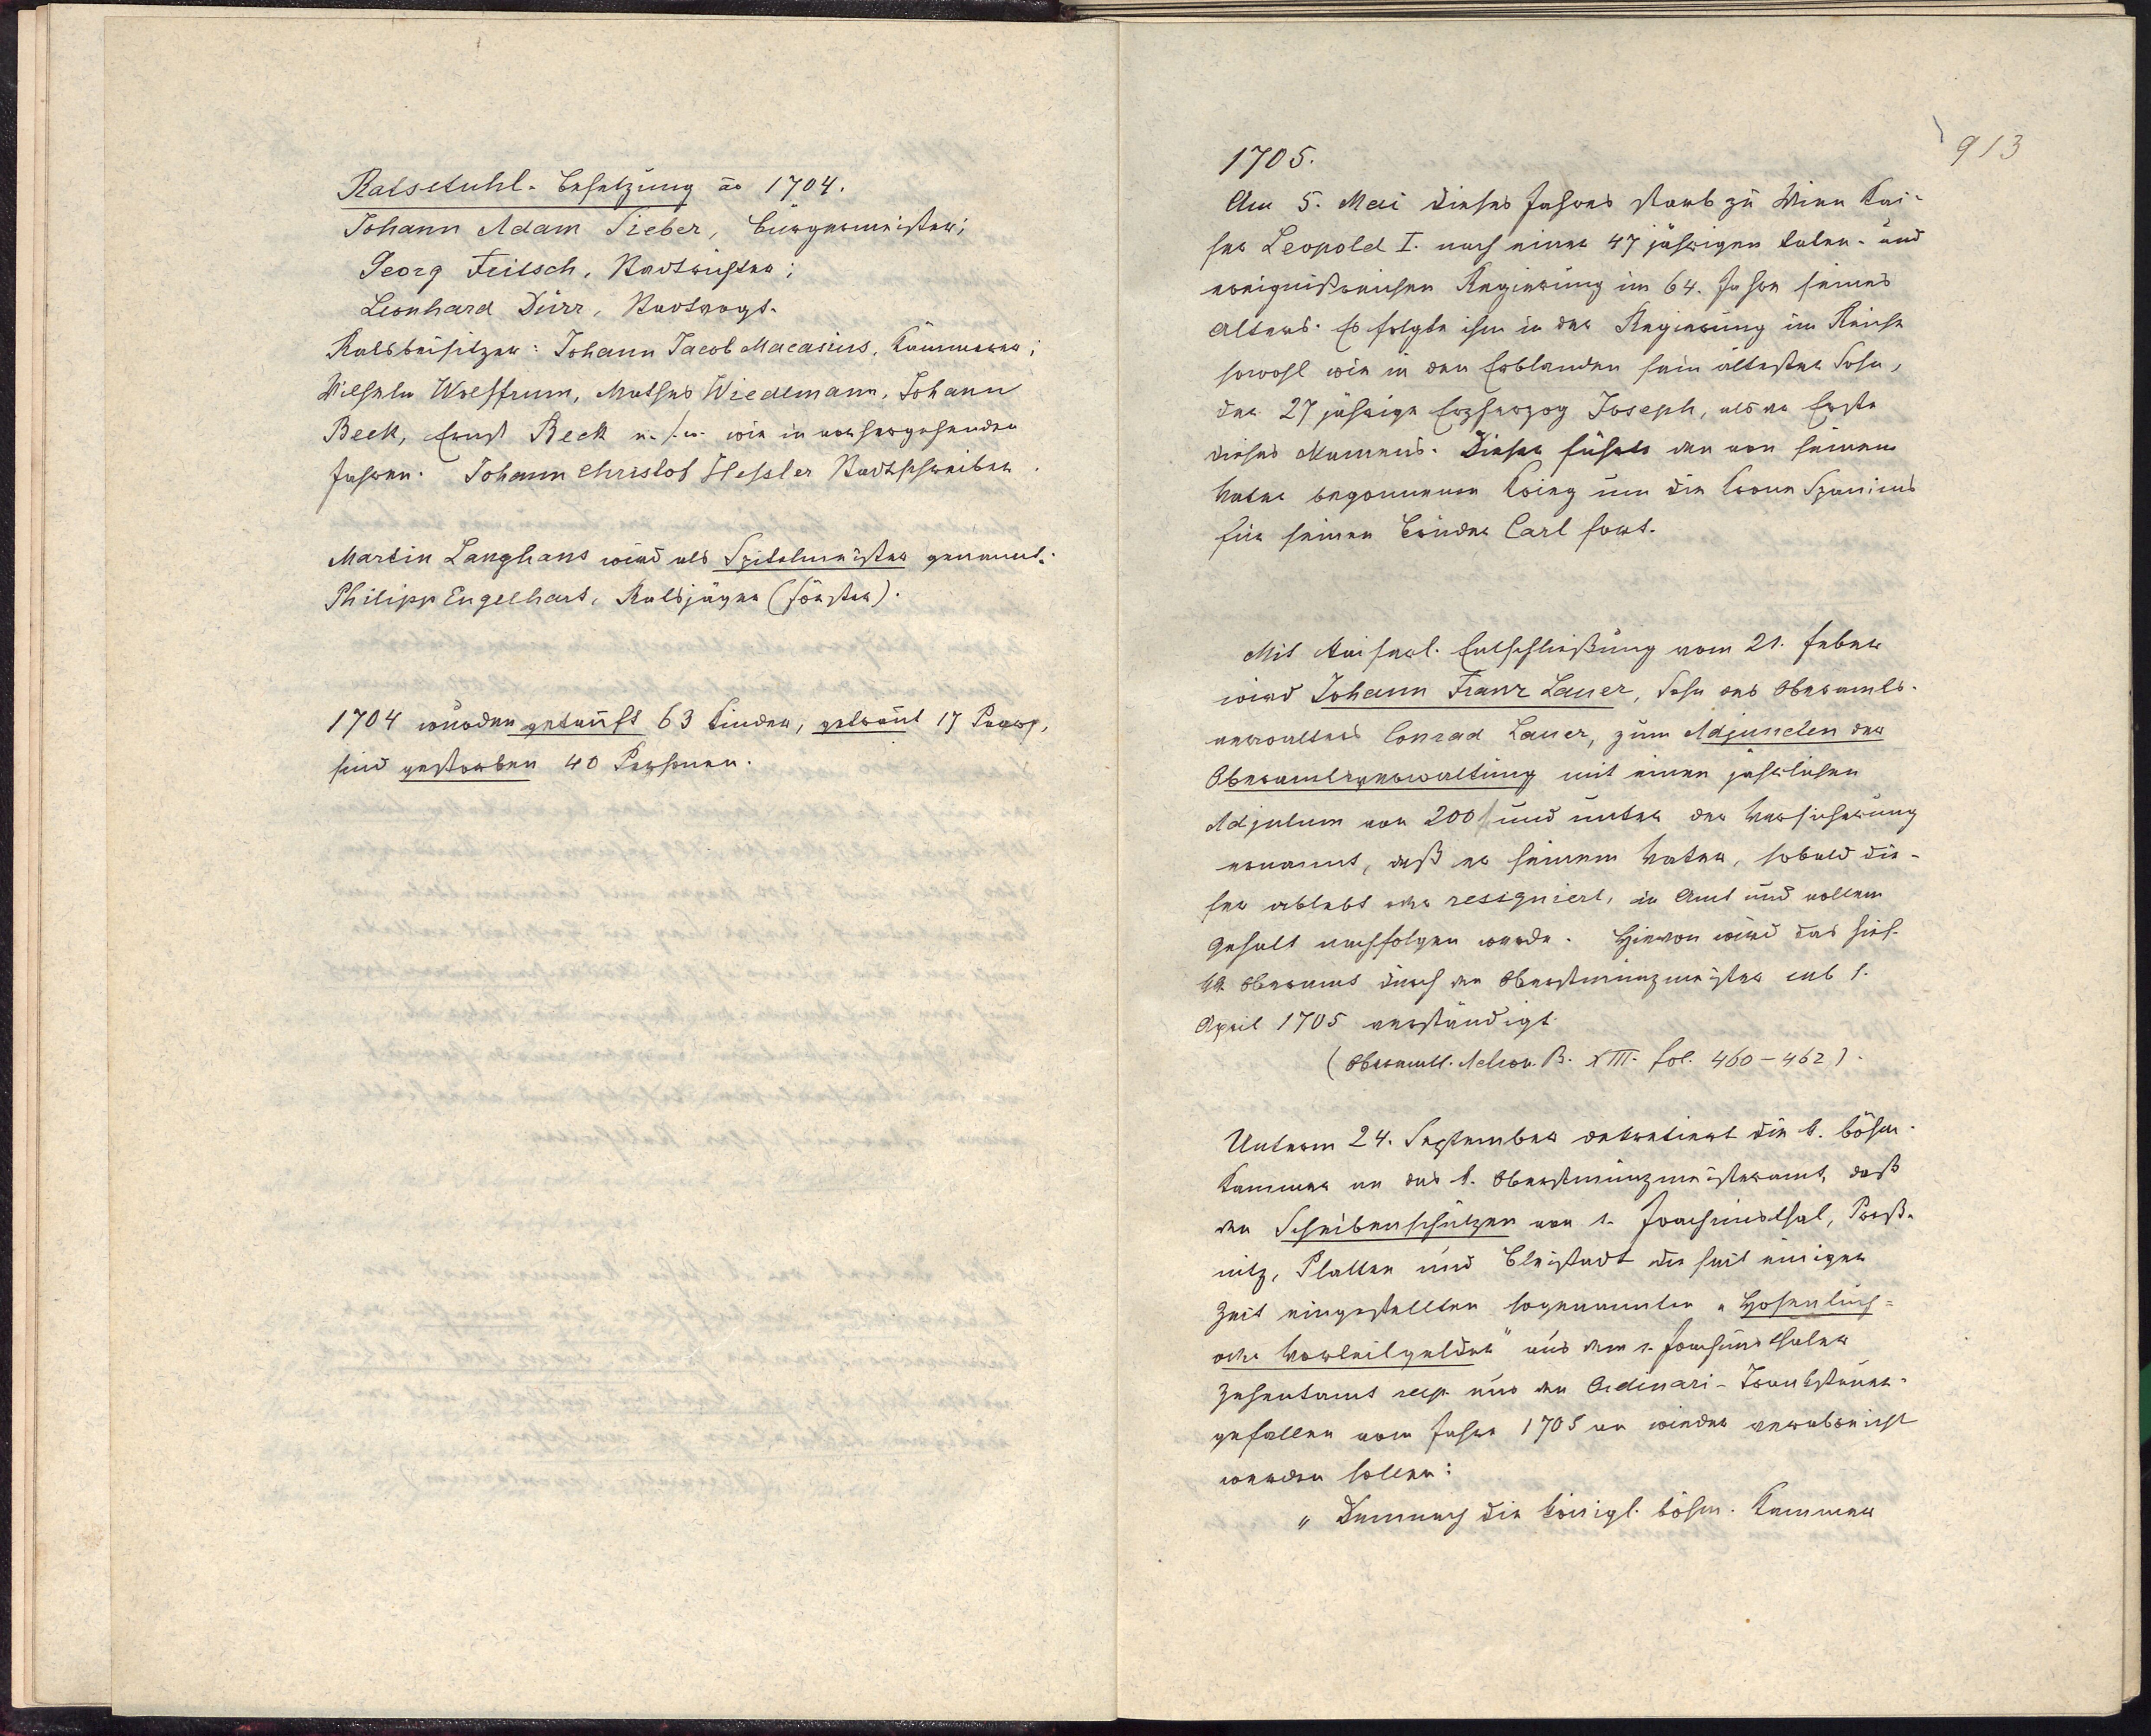 Ratsstuhl-Besetzung ao 1704.
Johann Adam Sieber, Bürgermeister;
Georg Feilsch, Stadtrichter;
Leonhard Dürr, Stadtvogt.
Ratsbeisitzer: Johann Jacob Macasius, Kämmerer;
Wilhelm Wolffrum, Mathes Wiedlmann, Johann
Beck, Ernst Beck u. s. w. wie in vorhergehenden
Jahren. Johann Christof Hessler Stadtschreiber.
Martin Langhans wird als Spitelmeister genannt.
Philipp Engelhart, Ratsjäger (Förster).
1704 wurden getauft 63 Kinder, getraut 17 Paare,
sind gestorben 40 Personen.
913
1705.
Am 5. Mai dieses Jahres starb zu Wien Kai-
ser Leopold I. nach einer 47 jährigen taten- und
ereignißreichen Regierung im 64. Jahre seines
Alters. Es folgte ihm in der Regierung im Reiche
sowohl wie in den Erblanden sein ältester Sohn,
der 27 jährige Erzherzog Joseph, als der Erste
dieses Namens. Dieser führte den von seinem
Vater begonnenen Krieg um die Krone Spaniens
für seinen Bruder Carl fort.
Mit Kaiserl. Entschließung vom 21. Feber
wird Johann Franz Lauer, Sohn des Oberamts-
verwalters Conrad Lauer, zum Adjuncten der
Oberamtsverwaltung mit einen jährlichen
Adjutum von 200 f und unter der Versicherung
ernannt, daß er seinem Vater, sobald die-
ser ablebt oder resigniert, in Amt und vollem
Gehalt nachfolgen werde. Hievon wird das hies.
kk Oberamt durch den Oberstmünzmeister sub 1.
April 1705 verständigt.
(Oberamtl. B. XIII. fol. 460-462).
Unterm 24. September dekretiert die k. böhm.
Kammer an das k. Oberstmünzmeisteramt, daß
den Scheibenschützen von s. Joachimsthal, Preß-
nitz, Platten und Bleistadt die seit einiger
Zeit eingestellten sogenannten "Hosentuch-
oder Vorteilgelder" aus dem s. Joachimsthaler
Zehentamt resp. aus den Ordinari-Tranksteuer-
gefällen vom Jahre 1705 an wieder verabreicht
werden sollen:
"Demnach die königl. böhm. Kammer